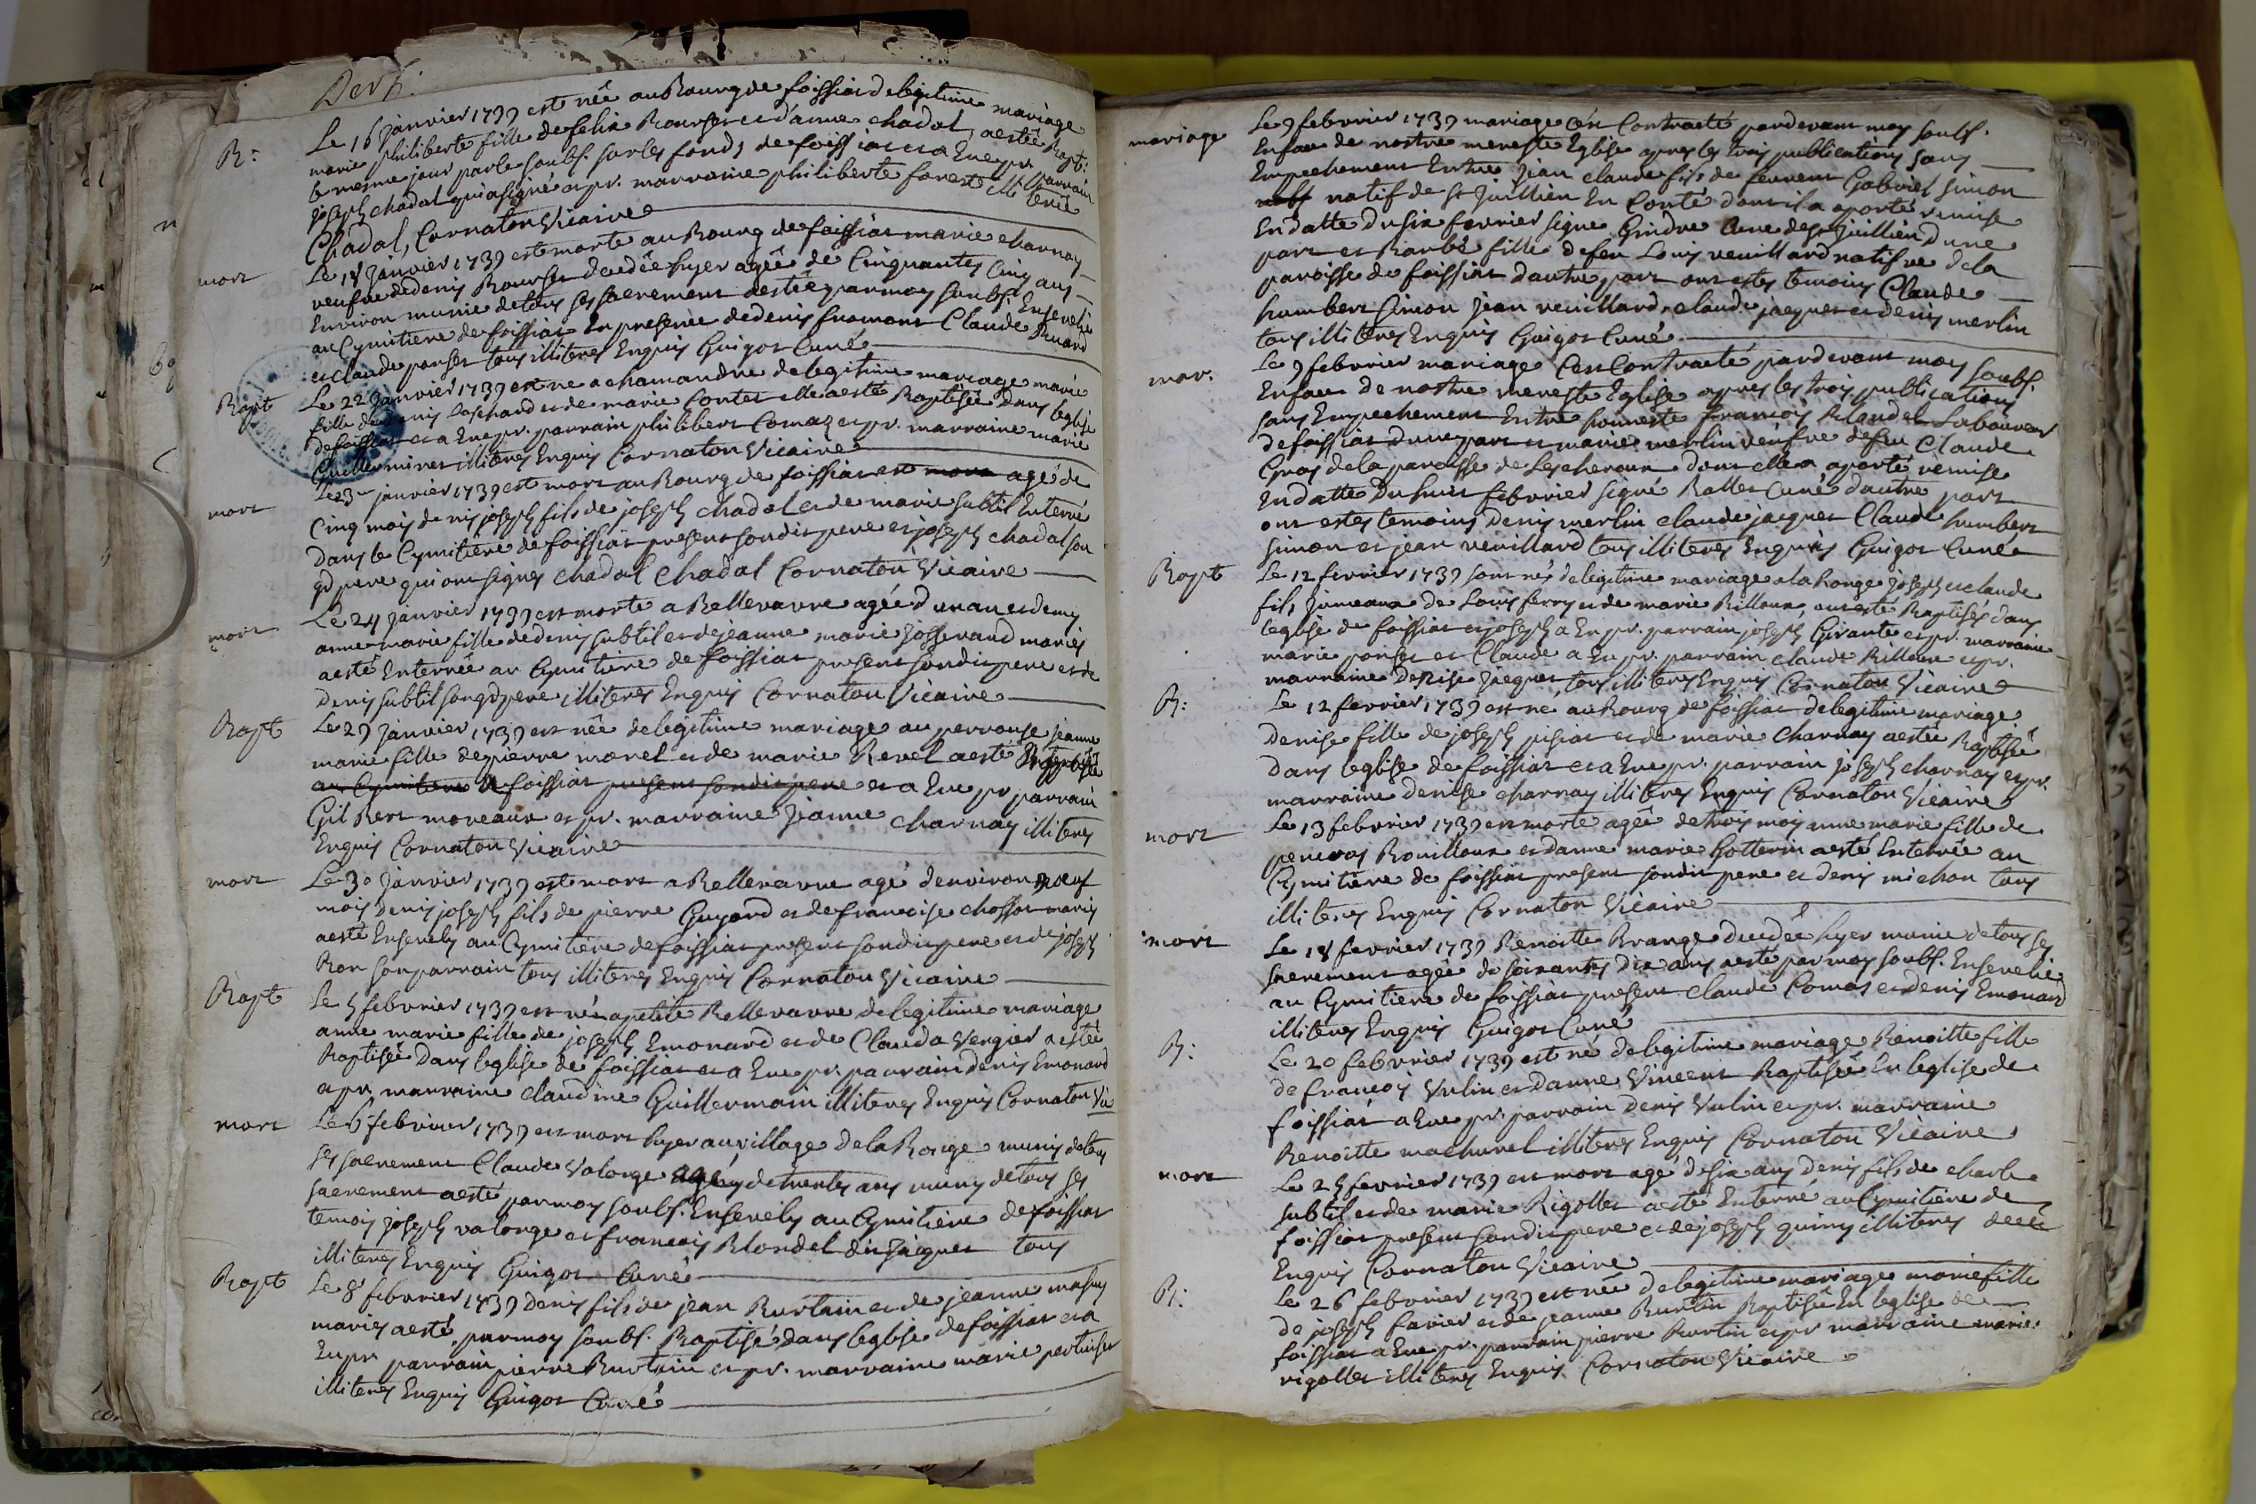 B:
Le 16 janvier 1739 est née au Bourg de foissiat de legitime mariage
marie philiberte fille de felix Bourset et d'anne chadal, a esté Bapt:
le mesme jour par le soubs. sur les fonds de foissiat et a Eue pr. parrain
joseph chadal qui a signé et pr. marraine philiberte forest illiterée
Chadal, Cornaton Vicaire
mort
Le 18 janvier 1739 est morte au Bourg de foissiat marie charnay
veufve de denis Bourset decedée hyer agée de Cinquantes Cinq ans
Environ munie de tous ses sacrement a estée par moy soubs. Ensevelie
au Cymitiere de foissiat En presence de denis fromont Claude
et claude ponset tous illiteres Enquis Guigot Curé
Bapt
Le 22 janvier 1739 est ne a chamandre de legitime mariage marie
fille de denis et de marie Contet elle a esté Baptisée dans leglise
de foissiat et a Eue pr. parrain philibert Comaz et pr. marraine marie
Guillerminet illiteres Enquis Cornaton Vicaire
mort
Le 23 janvier 1739 est mort au Bourg de foissiat est mort agé de
Cinq mois denis joseph fils de joseph chadal et de marie subtil Enterré
Dans le Cymitiere de foissiat present sondit pere et joseph chadal son
gd pere qui ont signés chadal chadal Cornaton Vicaire
mort
Le 24 janvier 1739 est morte a Bellevavre agée d'un an et demy
anne marie fille de denis subtil et de jeanne marie josserand mariés
a esté Enterrée au Cymitiere de foissiat present sondit pere et de
denis subtil son gd pere illiteres Enquis Cornaton Vicaire
Bapt
Le 29 janvier 1739 est née de legitime mariage au perrouse jeanne
marie fille de pierre morel et de marie Revel a esté Baptisée
au Cymitiere a foissiat present sondit pere et a Eue pr parrain
Gilbert moreaux et pr. marraine jeanne charnay illiteres
Enquis Cornaton Vicaire
mort
Le 30 janvier 1739 est mort a Bellevavre agé d'environ noeuf
mois denis joseph fils de pierre Guyard et de francoise chossat mariés
a esté Ensevely au Cymitiere de foissiat present sondit pere et de joseph
Bon son parrain tous illiteres Enquis Cornaton Vicaire
Bapt
Le 5 febvrier 1739 est née a petite Bellevavre de legitime mariage
anne marie fille de joseph Emonard et de Clauda Vergier a esté
Baptisée Dans leglise de foissiat et a Eue pr. parrain denis Emonard
a pr. marraine claudine Guillermain illiteres Enquis Cornaton Vic
mort
Le 6 febvrier 1739 est mort hyer au village de la Roage munis de tous
ses sacrement Claude Valonge agé de trentes ans muny de tous ses
sacrement a esté par moy soubs. Ensevely au Cymitiere de foissiat
temois joseph valonge et francois Blondel dit jacquet tous
illiteres Enquis Guigot Curé
Bapt
Le 8 febvrier 1739 denis fils de jean Burtain et de jeanne
maries a esté par moy soubs. Baptisé dans leglise de foissiat et a
Eu pr parrain pierre Burtain et pr. marraine marie pertuiset
illiteres Enquis Guigot Curé
mariage
Le 9 febvrier 1739 mariage c'est Contracté pardevant moy soubs.
Enface de nostre mereste Eglise apres les trois publications sans
Empechement Entre jean claude fils de feuvent Gabriel Simon
natif de st Juillien En Conté dont il a aporté remise
En datte du six fevrier signé Gindre Cure de st juillien d'une
part et Barbe fille de feu Louis revillard natifve de la
paroisse de foissiat dautre part ont estes temoins Claude
humbert Simon jean revillard, claude jacquet et denis merlin
tous illiteres Enquis Guigot Curé
mar.
Le 9 febvrier mariage C'est Contracté pardevant moy soubs.
Enface de nostre mereste Eglise apres les trois publications
sans Empechement Entre honneste francois Blondel Laboureur
de foissiat d'une part et marie merlin veufve de feu Claude
Gros de la paroisse de Lescheroux dont elle a aporté remise
En datte du huit febvrier signé Ballet Curé d'autre part
ont estes temoins denis merlin claude jacquet Claude humbert
Simon et jean revillard tous illiteres Enquis Guigot Curé
Bapt
Le 12 fevrier 1739 sont nés de legitime mariage a la Ronge joseph et claude
fils jumeaux de Louis ferry et de marie Billoux, ont esté Baptisés dans
leglise de foissiat et joseph a Eu pr. parrain joseph Girante et pr. marraine
marie ponset et Claude a Eu pr. parrain claude Billoux et pr.
marraine Denise jacquet, tous illiteres Enquis Cornaton Vicaire
B:
Le 12 fevrier 1739 est ne au Bourg de foissiat de legitime mariage
Denise fille de joseph et de marie Charnay a estée Baptisée
dans leglise de foissiat et a Eue pr. parrain joseph charnay et pr.
marraine denise charnay illiteres Enquis Cornaton Vicaire
mort
Le 13 febvrier 1739 est morte agée de trois moy anne marie fille de
Bouilloux et d'anne marie Gotterin a esté Enterrée au
Cymitiere de foissiat present sondit pere et denis michon tous
illiteres Enquis Cornaton Vicaire
mort
Le 18 fevrier 1739 Benoitte Brange decedée hyer munie de tous ses
sacrement agée de soixantes dix ans a esté par moy soubs. Ensevelie
au Cymitiere de foissiat present claude Comas et denis Emonard
illiteres Enquis Guigot Curé
B:
Le 20 febvrier 1739 est né de legitime mariage Benoitte fille
de francois Vulin et d'anne Vincent Baptisée En leglise de
foissiat a Eue pr. parrain Denis Vulin et pr. marraine
Benoitte machurel illiteres Enquis Cornaton Vicaire
mort
Le 25 fevrier 1739 est mort age de six ans denis fils de charle
subtil et de marie Rigollet a esté Enterré au Cymitiere de
foissiat present sondit pere et de joseph quiny illiteres de ce
Enquis Cornaton Vicaire
B:
Le 26 febvrier 1739 est née de legitime mariage marie fille
de joseph favier et de jeanne Burtin Baptisée En leglise de
foissiat a Eue pr. parrain pierre Burtin et pr marraine marie
rigollet illiteres Enquis Cornaton Vicaire